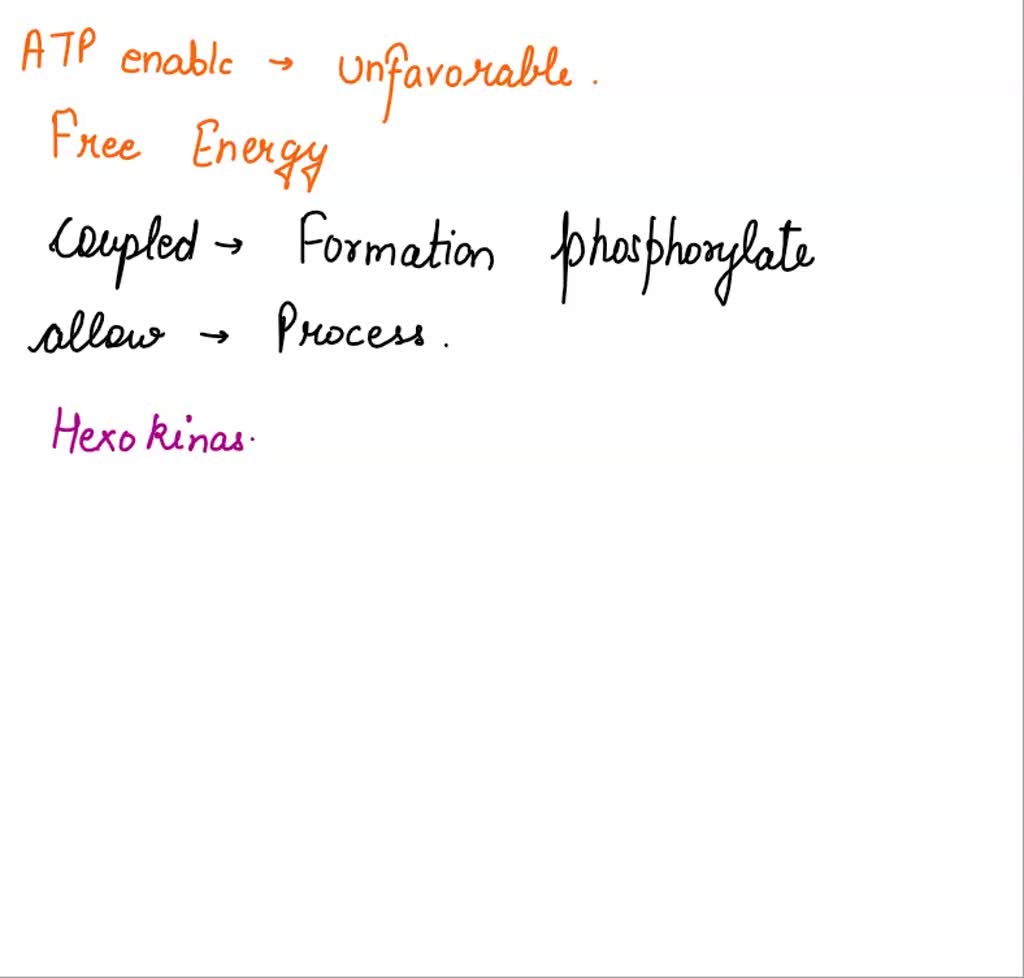 ATP enable → unfavorable.
Free Energy
coupled → Formation phosphorylate
allow → Process.
Hexokinas.